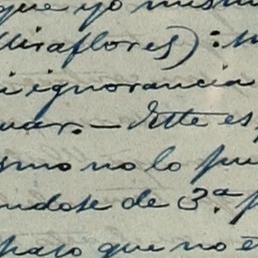 que yo mism
Miraflores): m
i ignorancia
uar. — Este es
smo no lo pue
ndose de 3.ª p
paso que no e